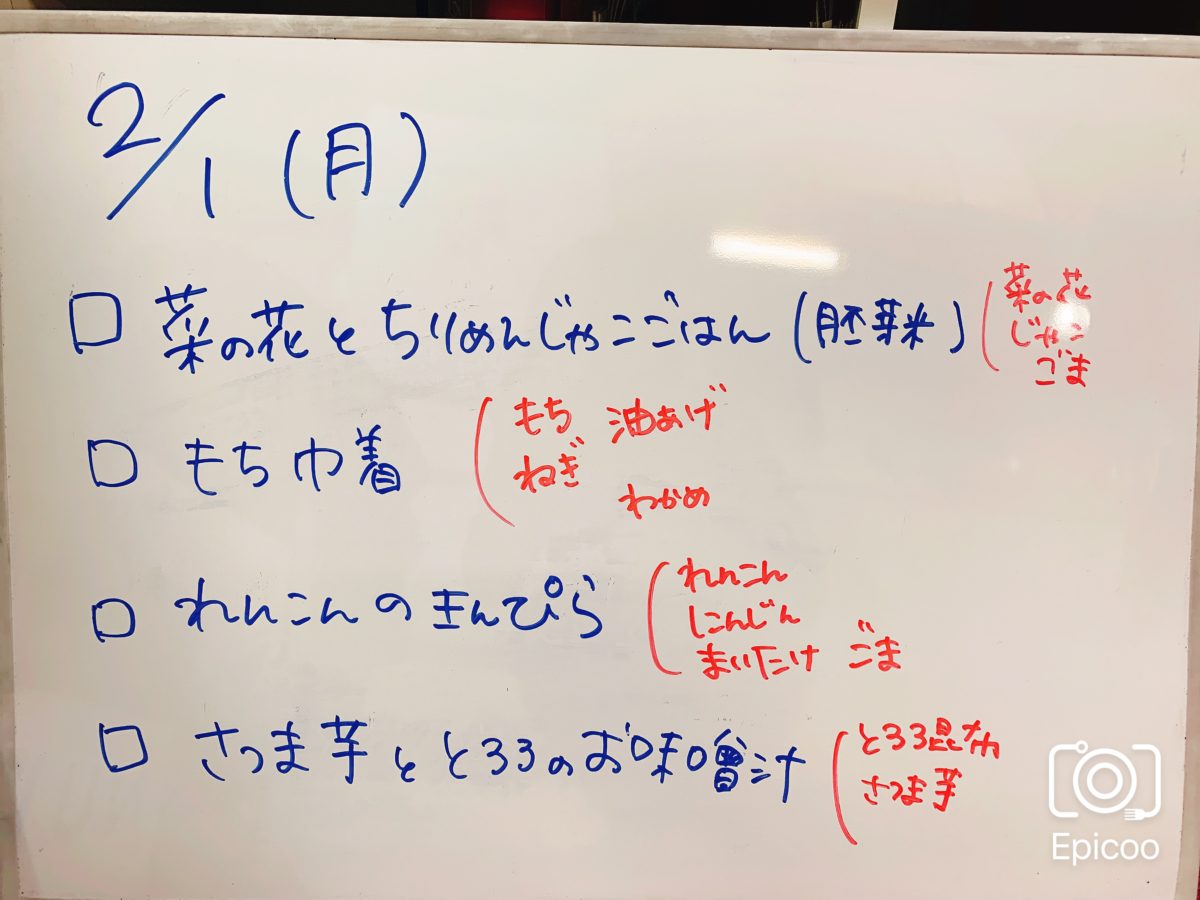 2/1 (月)
□ 菜の花とちりめんじゃこごはん (胚芽米)
菜の花
じゃこ
ごま
□ もち巾着
もち 油あげ
ねぎ
わかめ
□ れんこんのきんぴら
れんこん
にんじん
まいたけ ごま
□ さつま芋ととろろのお味噌汁
とろろ昆布
さつま芋
Epicoo